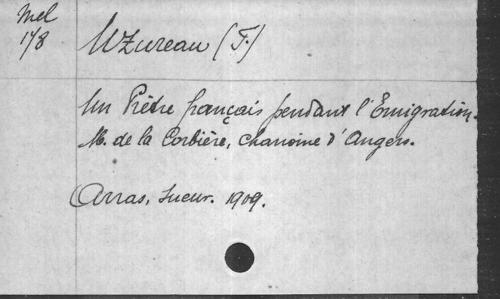 Mel
178
Uzureau (F.)
Un Prêtre français pendant l'Emigration.
M. de la Corbière, chanoine d'Angers.
Arras, Sueur. 1909.